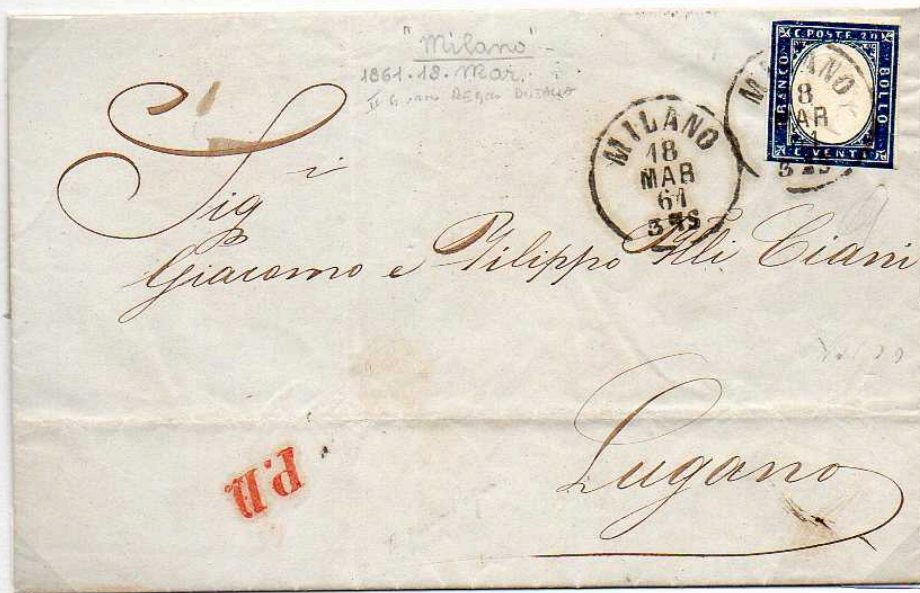 "Milano"
1861.18.Mar.
II Giorno REGNO D'ITALIA
C. POSTE 20
FRANCO
BOLLO
C. VENTI
MILANO
18
MAR
61
3 S
MILANO
8
AR
1
3 S
Sigⁱ
Giacomo e Filippo Flli Ciani
Lugano
P.D.